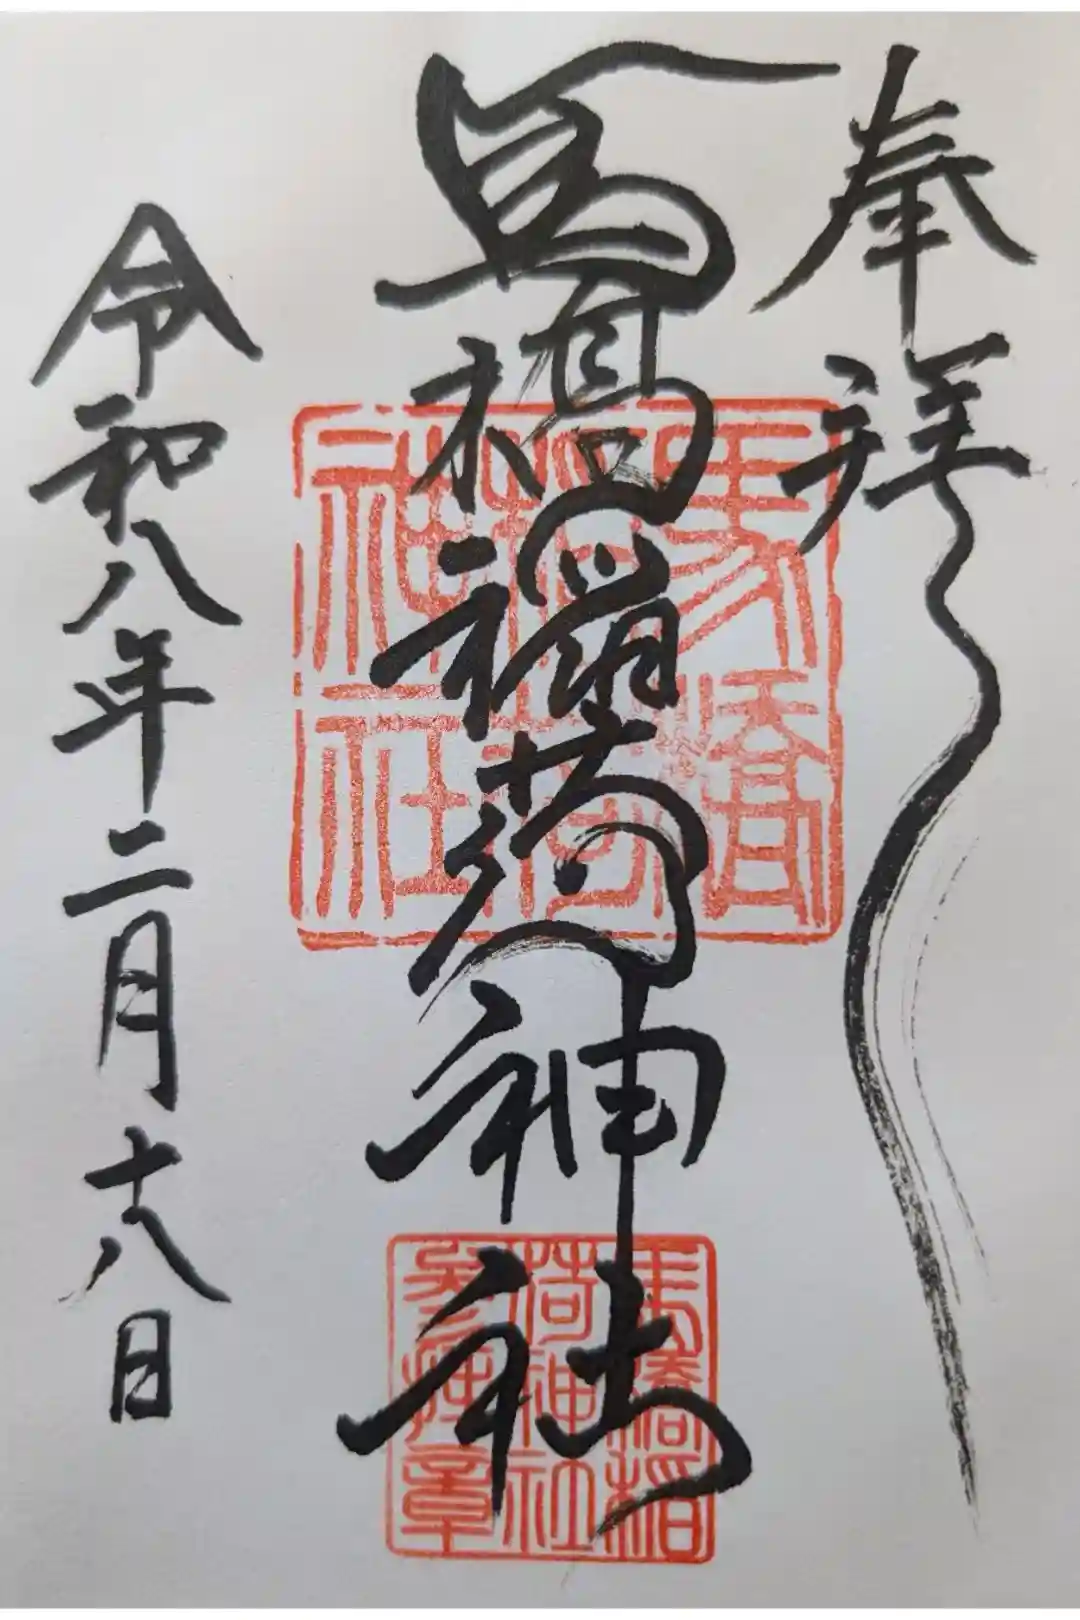 奉拝
馬橋稲荷神社
令和八年二月十八日
馬橋稲荷神社
馬橋稲荷神社参拝章